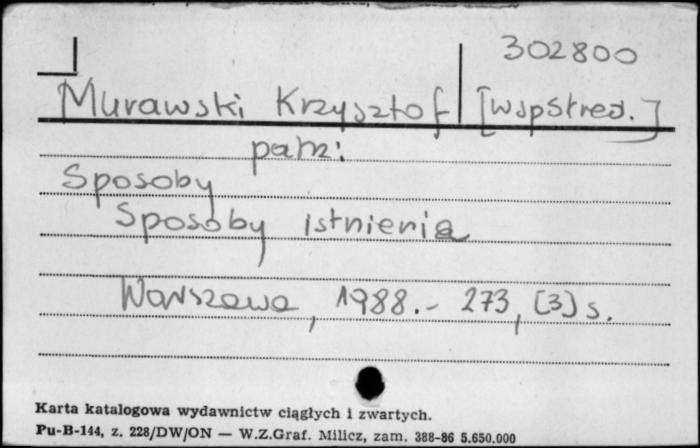 302800
Murawski Krzysztof [wspśred.]
patrz:
Sposoby
Sposoby istnienia
Warszawa, 1988.- 273, [3] s.
Karta katalogowa wydawnictw ciągłych i zwartych.
Pu-B-144, z. 228/DW/ON — W.Z.Graf. Milicz, zam. 388-86 5.650.000